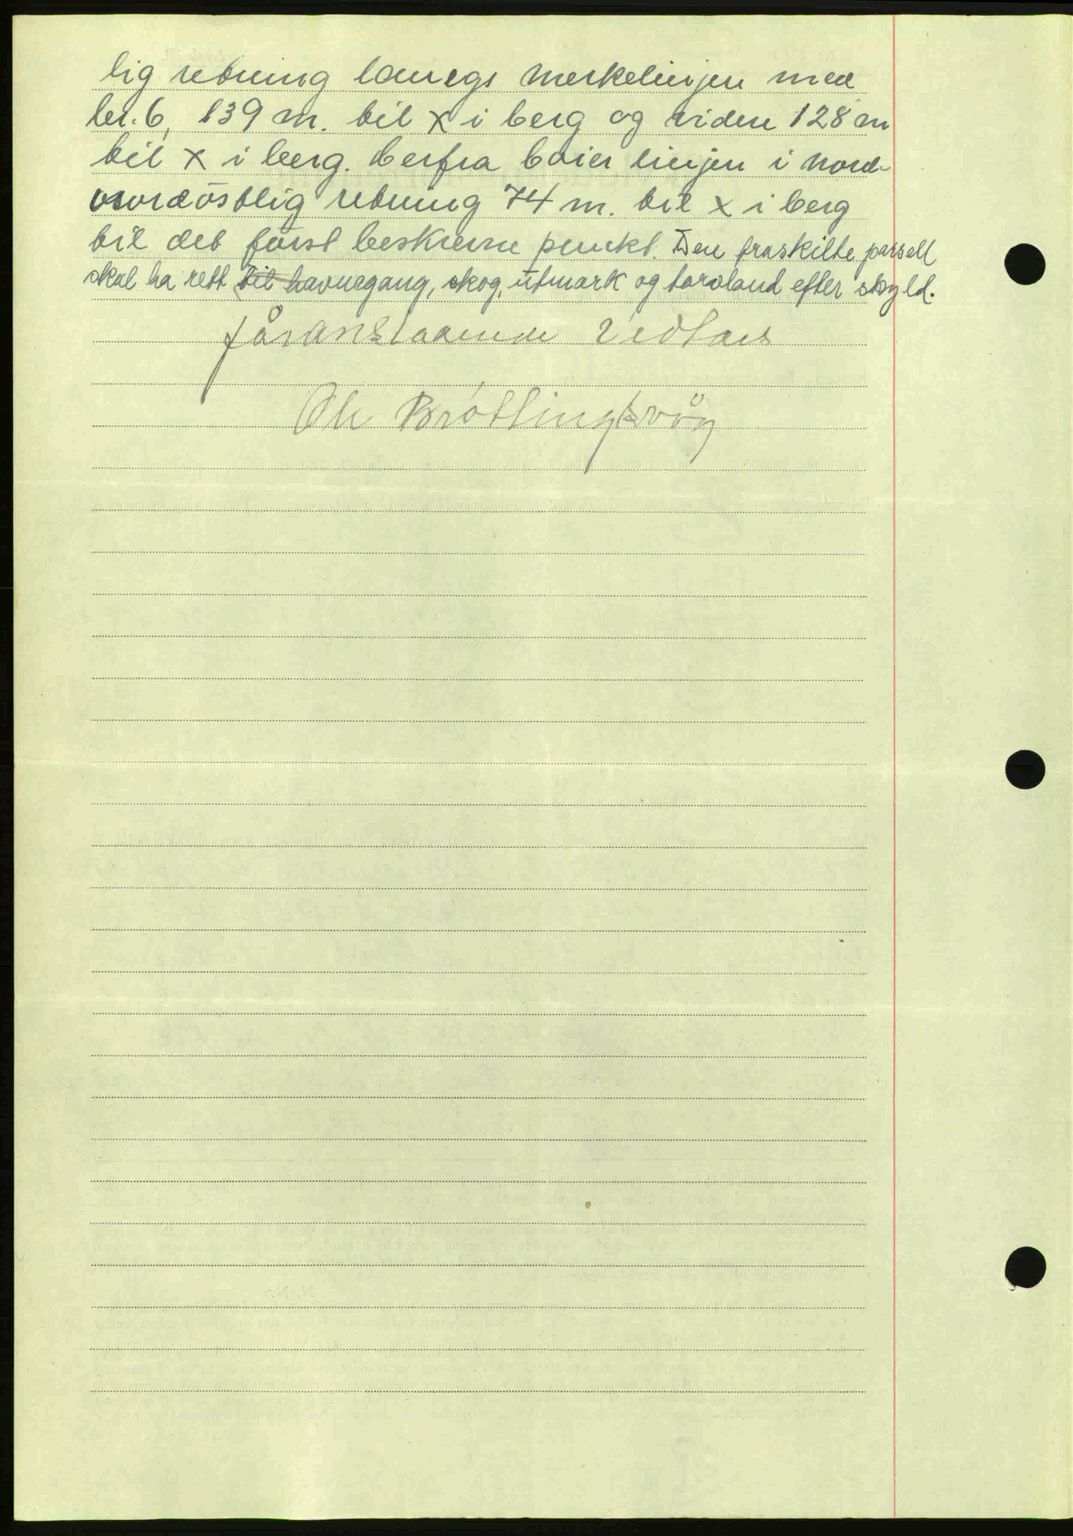 lig retning langs merkelinjen med
br. 6, 139 m. til x i berg og viden 128 m
til x i berg. Herfra boier linjen i nord-
nordöstlig retning 74 m. til x i berg
til det först beskrevne punkt. Den fraskilte parsell
skal ha rett til havnegang, skog, utmark og torvland efter skyld.
foranstaaende vedtas
Ole Bröttingsvåg